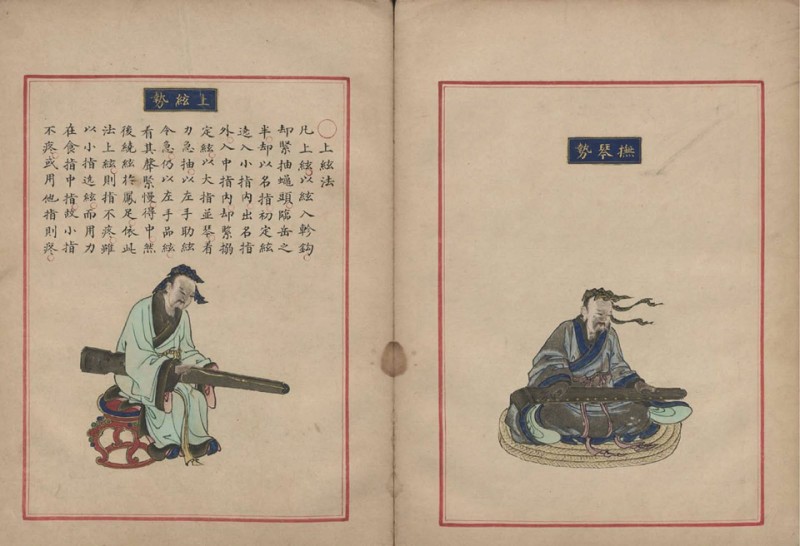 撫琴勢
上絃勢
上絃法
凡上絃以絃入軫鈎
却緊抽蠅頭臨岳之
半却以名指初定絃
遶入小指內出名指
外入中指內却緊搦
定絃以大指並琴着
力急抽以左手助絃
令急仍以左手品絃
看其聲緊慢得中然
後繞絃於鳳足依此
法上絃則指不疼雖
以小指遶絃而用力
在食指中指故小指
不疼或用他指則疼